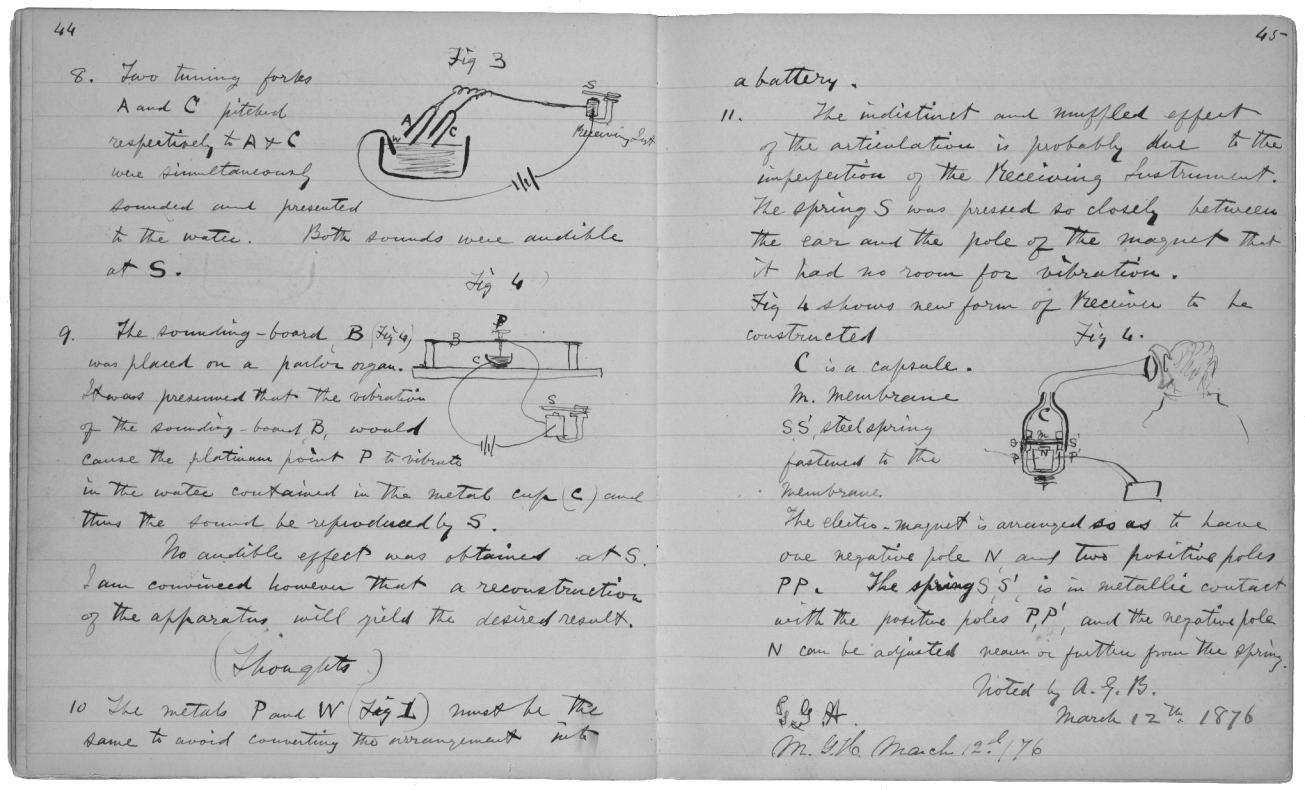 44
Fig 3
8. Two tuning forks
A and C pitched
respectively to A & C
were simultaneously
sounded and presented
to the water. Both sounds were audible
at S.
A
C
W
S
Receiving Inst
Fig 4
9. The sounding-board, B (Fig 4)
was placed on a parlor organ.
It was presumed that the vibration
of the sounding-board, B, would
cause the platinum point P to vibrate
in the water contained in the metal cup (C) and
thus the sound be reproduced by S.
P
B
C
S
No audible effect was obtained at S.
I am convinced however that a reconstruction
of the apparatus will yield the desired result.
(Thoughts)
10 The metals P and W (Fig 1) must be the
same to avoid converting the arrangement into
45
a battery.
11. The indistinct and muffled effect
of the articulation is probably due to the
imperfection of the Receiving Instrument.
The spring S was pressed so closely between
the ear and the pole of the magnet that
it had no room for vibration.
Fig 4 shows new form of Receiver to be
constructed
Fig 4.
C is a capsule.
M. Membrane
S,S', steel spring
fastened to the
membrane.
C
m
S
S'
N
P
P'
The electro-magnet is arranged so as to have
one negative pole N, and two positive poles
PP. The spring S,S', is in metallic contact
with the positive poles P,P', and the negative pole
N can be adjusted nearer or further from the spring.
Noted by A. G. B.
March 12th, 1876
G G H.
M. G. H. March 12.d/76